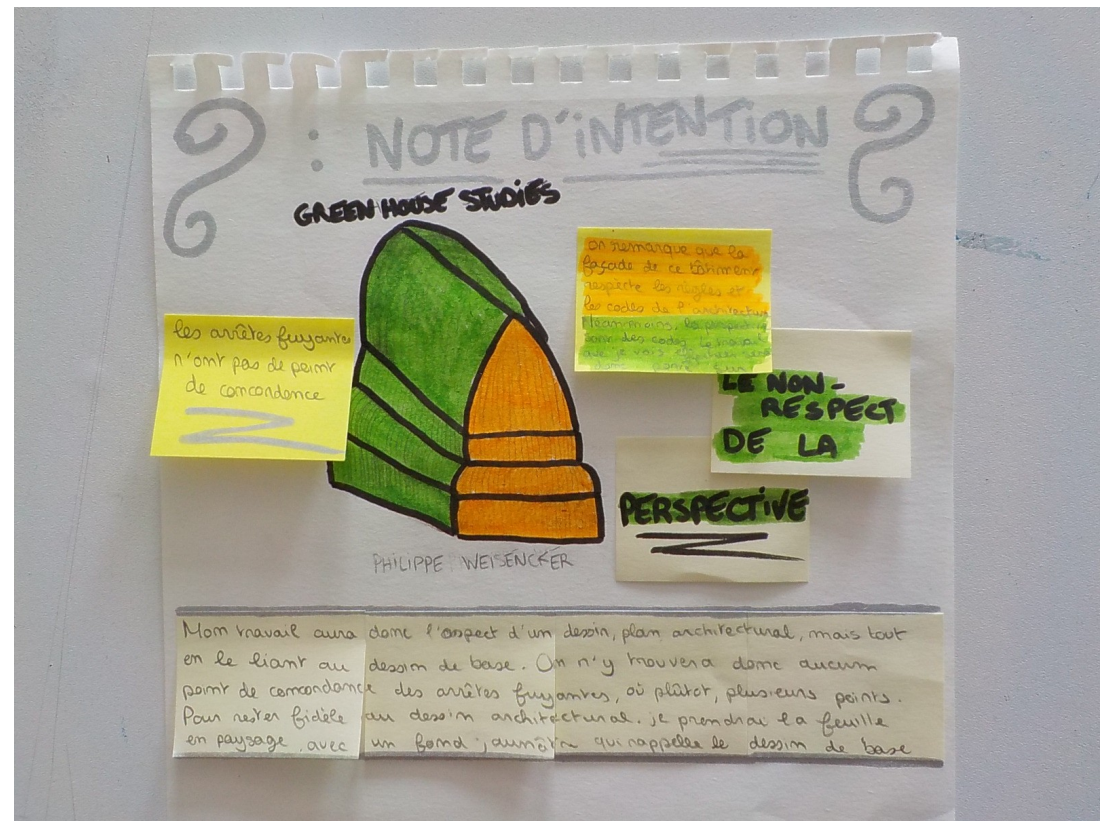 : NOTE D'INTENTION
GREEN HOUSE STUDIES
on remarque que la
façade de ce bâtiment
respecte les règles et
les codes de l'architecture
Néanmoins, la
sort des codes. Le travail
que je vais
donc
les arrêtes fuyantes
n'ont pas de point
de concordence
LE NON-
RESPECT
DE LA
PERSPECTIVE
PHILIPPE WEISENCKER
Mon travail aura donc l'aspect d'un dessin, plan architectural, mais tout
en le liant au dessin de base. On n'y trouvera donc aucun
point de concordance des arrêtes fuyantes, où plûtot, plusieurs points.
Pour rester fidèle au dessin architectural. je prendrai la feuille
en paysage avec un fond jaunâtre qui rappelle le dessin de base